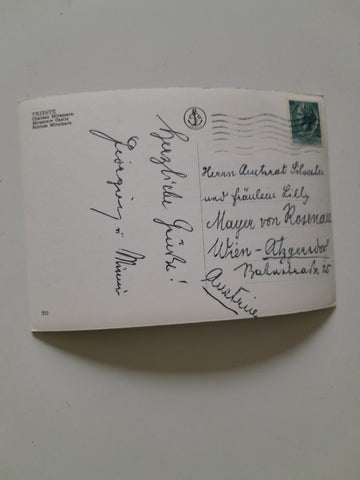 TRIESTE
Château Miramare
Miramare Castle
Schloss Miramare
Herzliche Grüße!
Giorgina u. Mimi
Herrn Amtsrat
und Fräulein Lilly
Mayer von Rosenau
Wien-Atzgersdorf
Bahnstraße 25
Austria